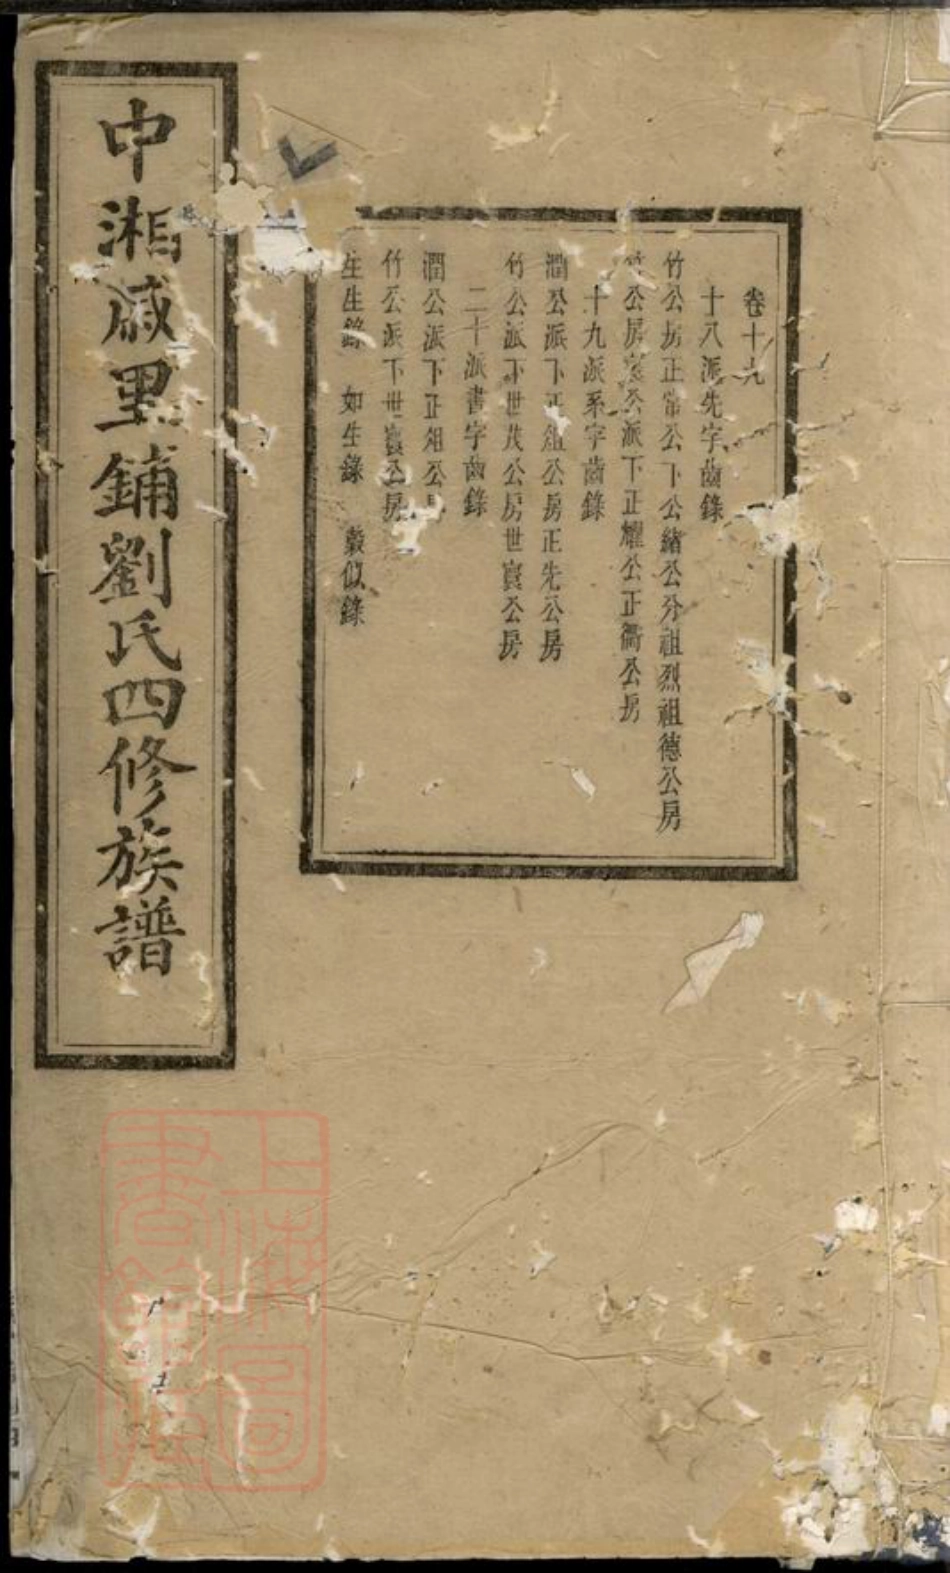 中湘戚里鋪劉氏四修族譜
卷十九
十八派先字齒錄
竹公房正常公下公緒公分祖烈祖德公房
竹公房寰公派下正耀公正衢公房
十九派系字齒錄
潤公派下正俎公房正先公房
竹公派下世茂公房世寰公房
二十派書字齒錄
潤公派下正俎公房
竹公派下世寰公房
生生錄 如生錄 穀似錄
上海圖書館藏